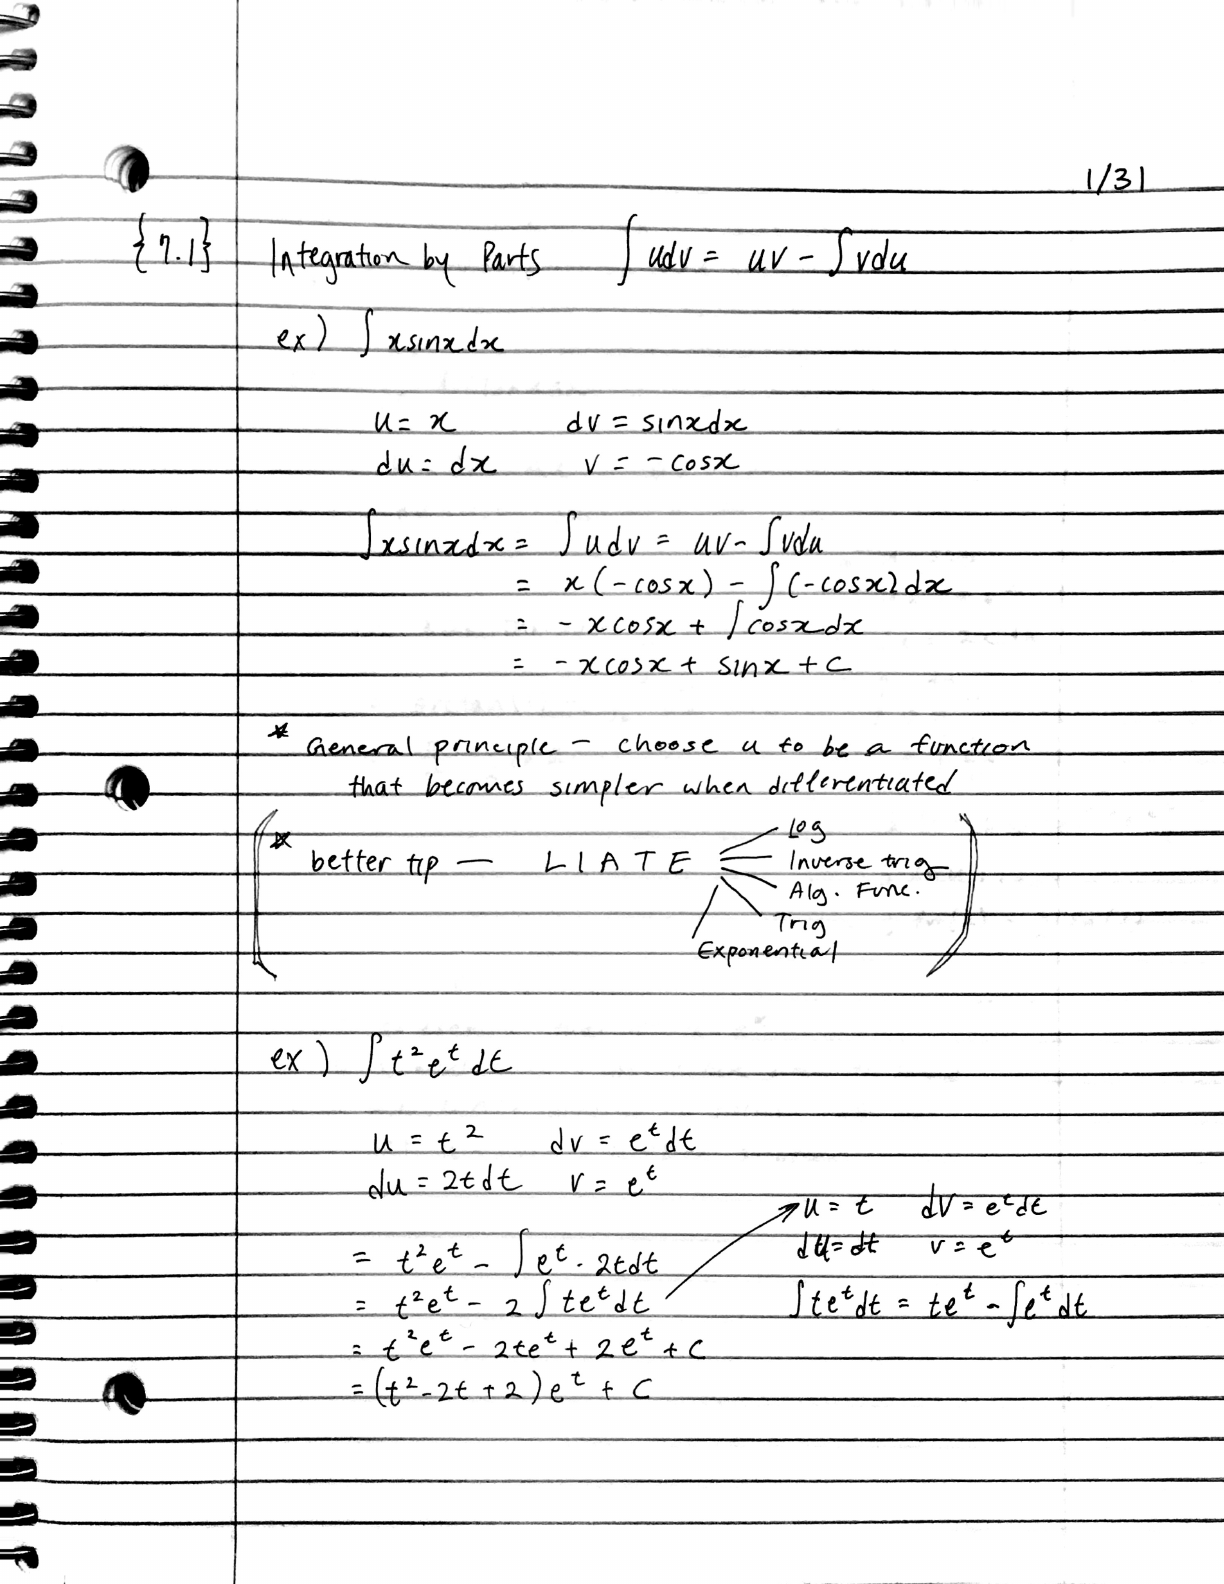 1/31
{7.1} Integration by Parts ∫udv = uv - ∫vdu
ex) ∫xsinxdx
u = x dv = sinxdx
du = dx v = -cosx
∫xsinxdx = ∫udv = uv - ∫vdu
= x(-cosx) - ∫(-cosx)dx
= -xcosx + ∫cosxdx
= -xcosx + sinx + C
* General principle - choose u to be a function
that becomes simpler when differentiated
* better tip — LIATE
Log
Inverse trig
Alg. Func.
Trig
Exponential
ex) ∫t²eᵗdt
u = t² dv = eᵗdt
du = 2tdt v = eᵗ
= t²eᵗ - ∫eᵗ · 2tdt
= t²eᵗ - 2∫teᵗdt
u = t dv = eᵗdt
du = dt v = eᵗ
∫teᵗdt = teᵗ - ∫eᵗdt
= t²eᵗ - 2teᵗ + 2eᵗ + C
= (t² - 2t + 2)eᵗ + C